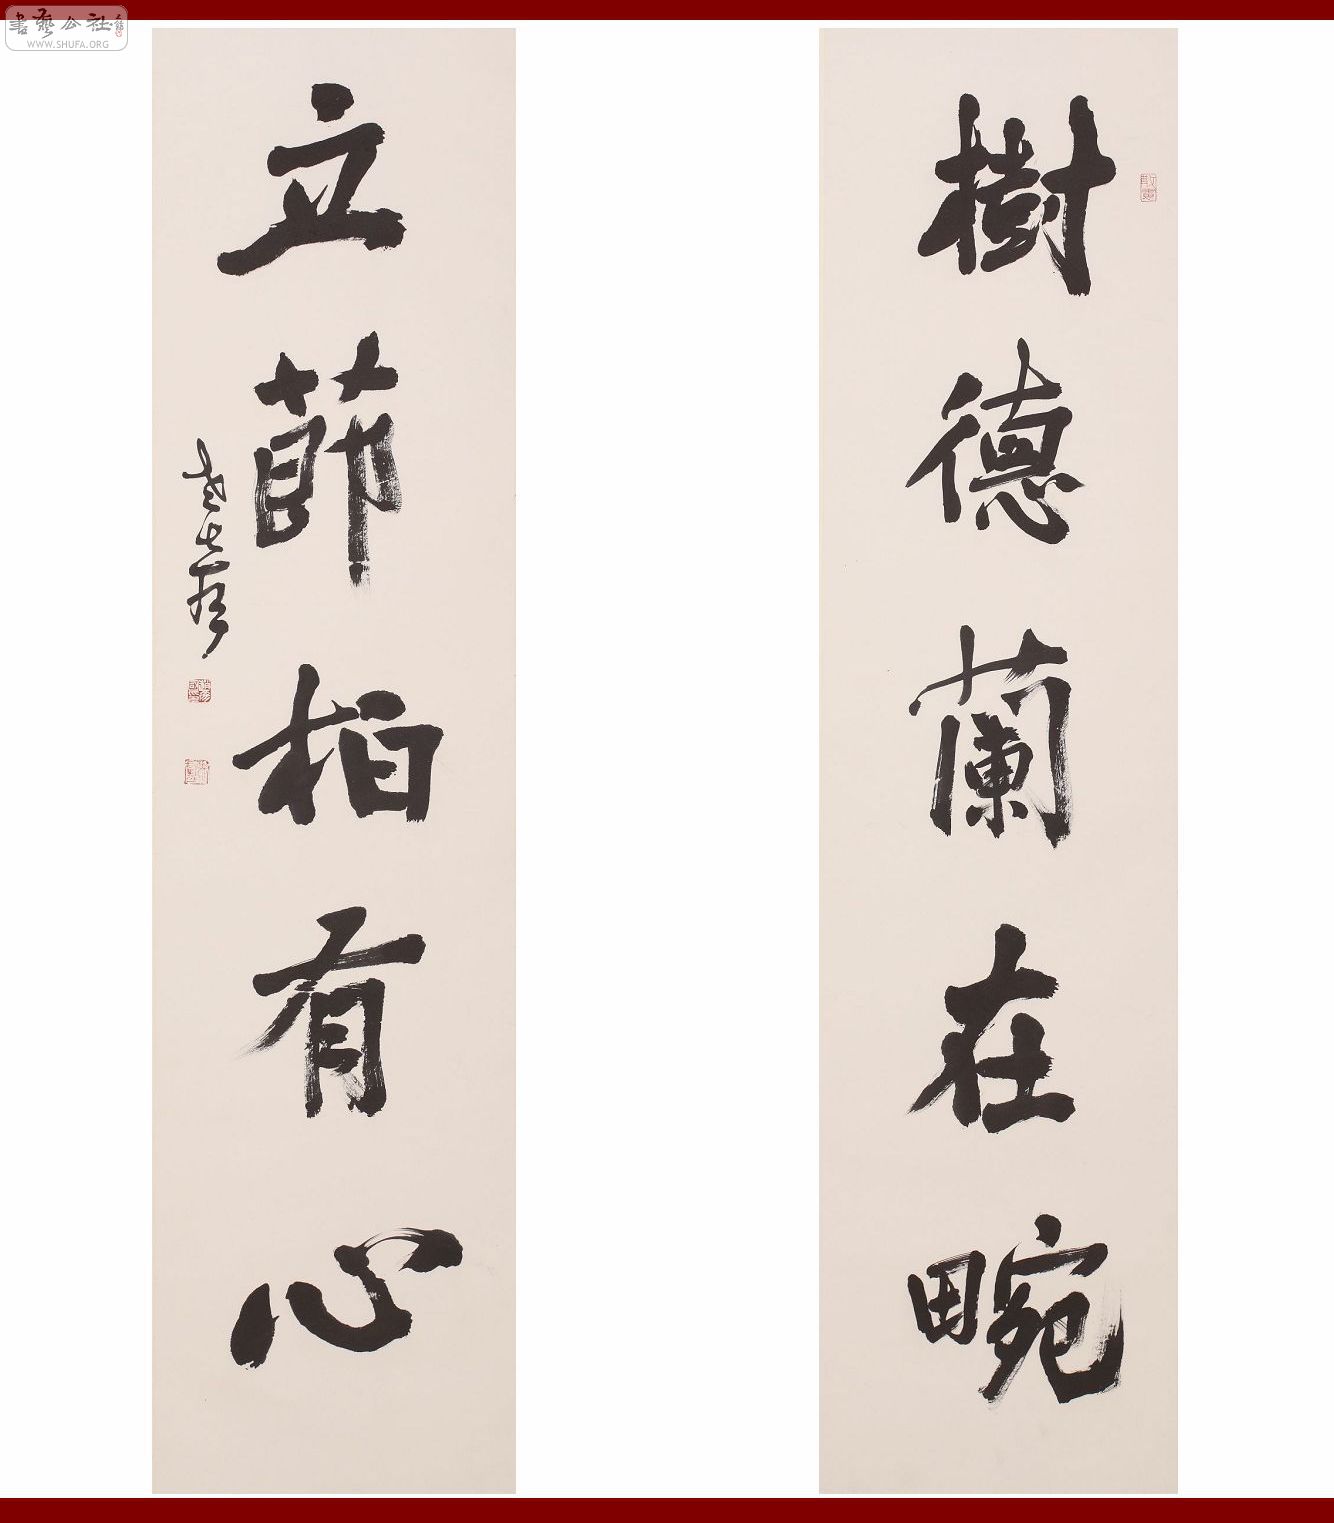 樹德蘭在畹
立節柏有心
書藝公社
WWW.SHUFA.ORG